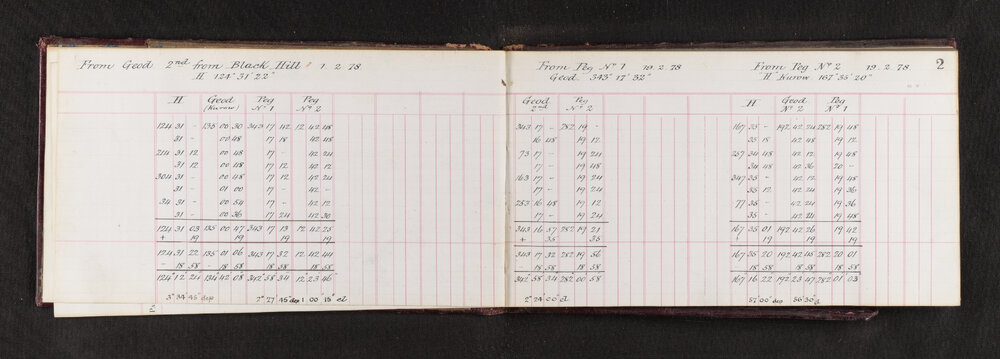 From Geod 2nd from Black Hill 1. 2. 78.
H 124° 31' 22"
H Geod (Kurow) Peg No 1 Peg No 2
124 31 – 135 00 30 343 17 42 12 42 48
31 – 00 48 17 18 42 48
214 31 12 00 48 17 – 42 24
31 12 00 48 17 12 42 12
304 31 – 00 48 17 12 42 24
31 – 01 00 17 – 42 –
34 31 – 00 54 17 – 42 12
31 – 00 36 17 24 42 36
124 31 03 135 00 47 343 17 13 12 42 25
+ 19 19 19 19
124 31 22 135 01 06 343 17 32 12 42 44
– 18 58 18 58 18 58 18 58
124° 12 24 134° 42 08 342° 58 34 12° 23 46
3° 34' 45" dep 2° 27' 45" dep 1 00 15" el
From Peg No 1 19. 2. 78
Geod 343° 17' 32"
Geod 2nd Peg No 2
343 17 – 282 19 –
16 48 19 12
73 17 – 19 24
17 – 19 48
163 17 – 19 24
17 – 19 24
253 16 48 19 12
17 – 19 24
343 16 57 282 19 21
+ 35 35
343 17 32 282 19 56
18 58 18 58
342° 58 34 282 00 58
2° 24' 00" el
From Peg No 2 19. 2. 78. 2
H Kurow 167° 35' 20"
H Geod No 2 Peg No 1
167 35 – 192 42 24 282 19 48
35 18 42 48 19 12
257 34 48 42 12 19 48
34 48 42 36 20 –
347 35 – 42 24 19 48
35 12 42 24 19 36
77 35 – 42 24 19 36
35 – 42 24 19 48
167 35 01 192 42 26 282 19 42
+ 19 19 19
167 35 20 192 42 45 282 20 01
18 58 18 58 18 58
167 16 22 192 23 47 282° 01 03
57' 00" dep 56' 30" el